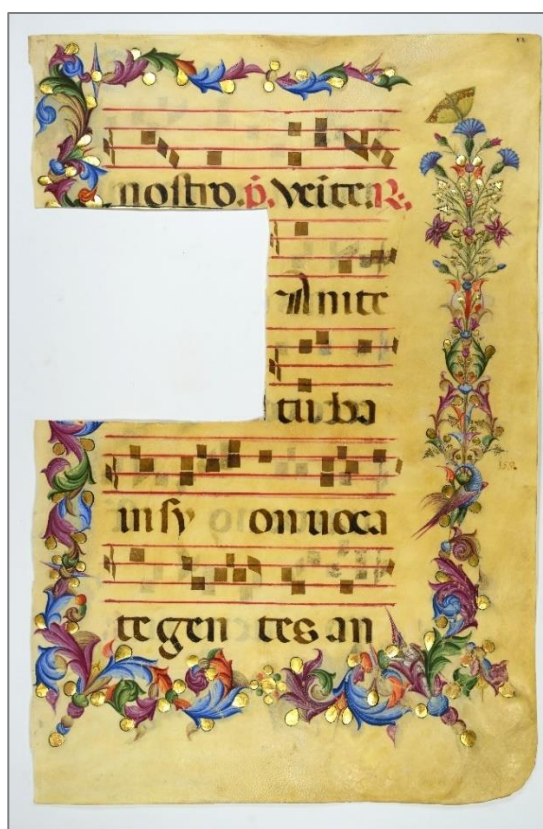 nostro. p̄. Veite R.
anite
tuba
in sy on uoca
te gen tes an